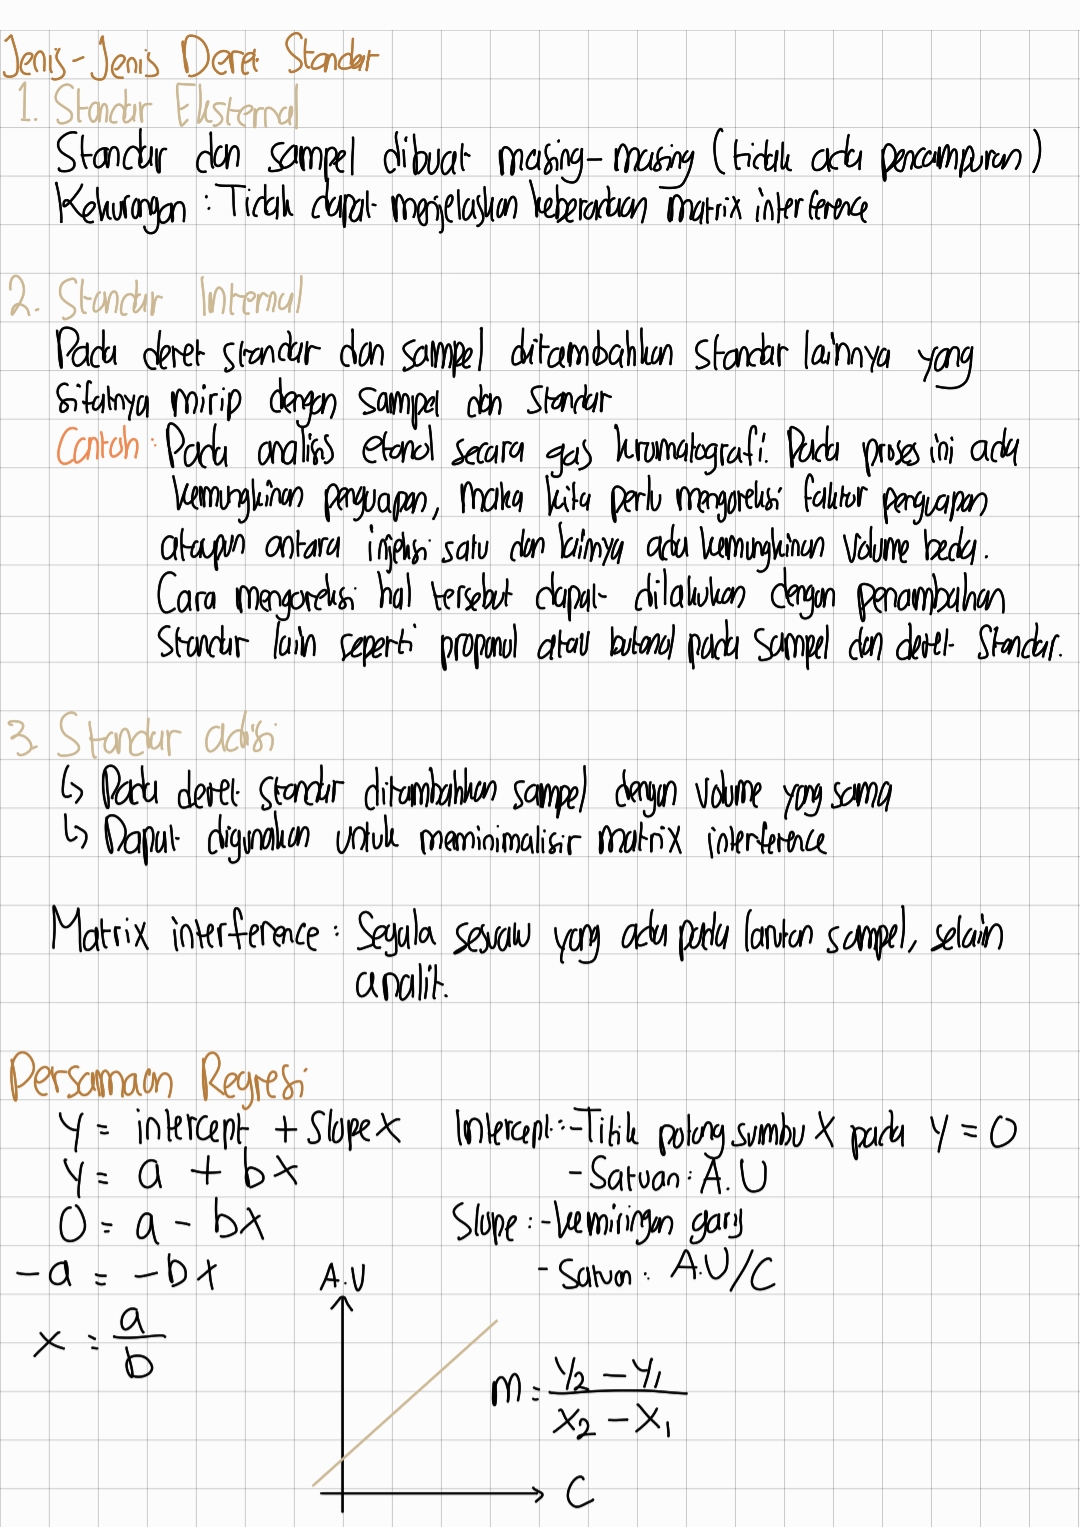 Jenis-Jenis Deret Standar
1. Standar Eksternal
Standar dan sampel dibuat masing-masing (tidak ada pencampuran)
Kekurangan : Tidak dapat menjelaskan keberadaan matrix interference
2. Standar Internal
Pada deret standar dan sampel ditambahkan standar lainnya yang
sifatnya mirip dengan sampel dan standar
Contoh : Pada analisis etanol secara gas kromatografi. Pada proses ini ada
kemungkinan penguapan, maka kita perlu mengoreksi faktor penguapan
ataupun antara injeksi satu dan lainnya ada kemungkinan volume beda.
Cara mengoreksi hal tersebut dapat dilakukan dengan penambahan
standar lain seperti propanol atau butanol pada sampel dan deret standar.
3. Standar adisi
↳ Pada deret standar ditambahkan sampel dengan volume yang sama
↳ Dapat digunakan untuk meminimalisir matrix interference
Matrix interference : Segala sesuatu yang ada pada larutan sampel, selain
analit.
Persamaan Regresi
Y = intercept + Slope X
Y = a + bx
0 = a - bx
-a = -bx
x = a/b
Intercept : - Titik potong sumbu X pada Y = 0
- Satuan : A.U
Slope : - kemiringan garis
- Satuan : A.U/C
A.U
m = Y₂ - Y₁ / X₂ - X₁
C